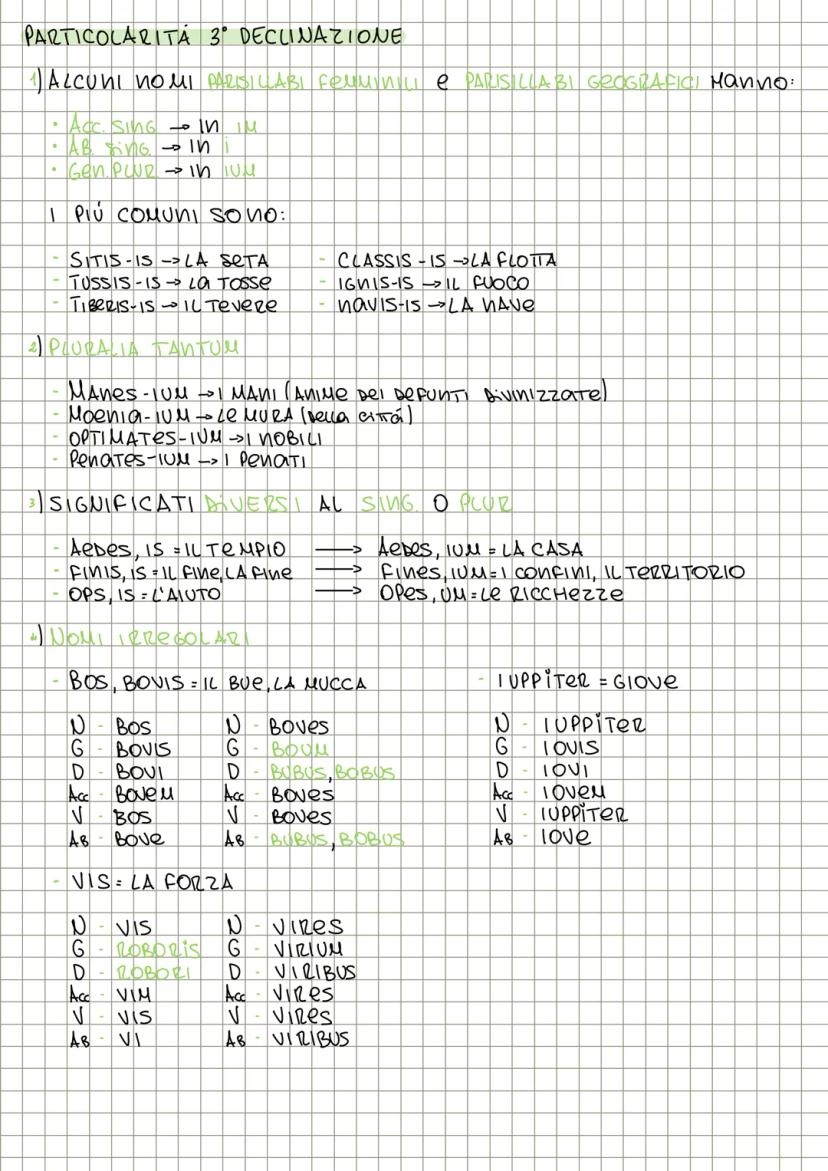 PARTICOLARITÁ 3° DECLINAZIONE
1) ALCUNI NOMI PARISILLABI FEMMINILI e PARISILLABI GEOGRAFICI HANNO:
• ACC. SING → IN IM
• AB. SING. → IN I
• GEN. PLUR → IN IUM
I PIÚ COMUNI SONO:
- SITIS-IS → LA SETA - CLASSIS-IS → LA FLOTTA
- TUSSIS-IS → LA TOSSE - IGNIS-IS → IL FUOCO
- TIBERIS-IS → IL TEVERE - NAVIS-IS → LA NAVE
2) PLURALIA TANTUM
- MANES-IUM → I MANI (ANIME DEI DEFUNTI DIVINIZZATE)
- MOENIA-IUM → LE MURA (DELLA CITTÁ)
- OPTIMATES-IUM → I NOBILI
- PENATES-IUM → I PENATI
3) SIGNIFICATI DIVERSI AL SING. O PLUR
- AEDES, IS = IL TEMPIO → AEDES, IUM = LA CASA
- FINIS, IS = IL FINE, LA FINE → FINES, IUM = I CONFINI, IL TERRITORIO
- OPS, IS = L'AIUTO → OPES, UM = LE RICCHEZZE
4) NOMI IRREGOLARI
- BOS, BOVIS = IL BUE, LA MUCCA - IUPPITER = GIOVE
N - BOS N - BOVES N - IUPPITER
G - BOVIS G - BOUM G - IOVIS
D - BOVI D - BUBUS, BOBUS D - IOVI
ACC - BOVEM ACC - BOVES ACC - IOVEM
V - BOS V - BOVES V - IUPPITER
AB - BOVE AB - BUBUS, BOBUS AB - IOVE
- VIS = LA FORZA
N - VIS N - VIRES
G - ROBORIS G - VIRIUM
D - ROBORI D - VIRIBUS
ACC - VIM ACC - VIRES
V - VIS V - VIRES
AB - VI AB - VIRIBUS